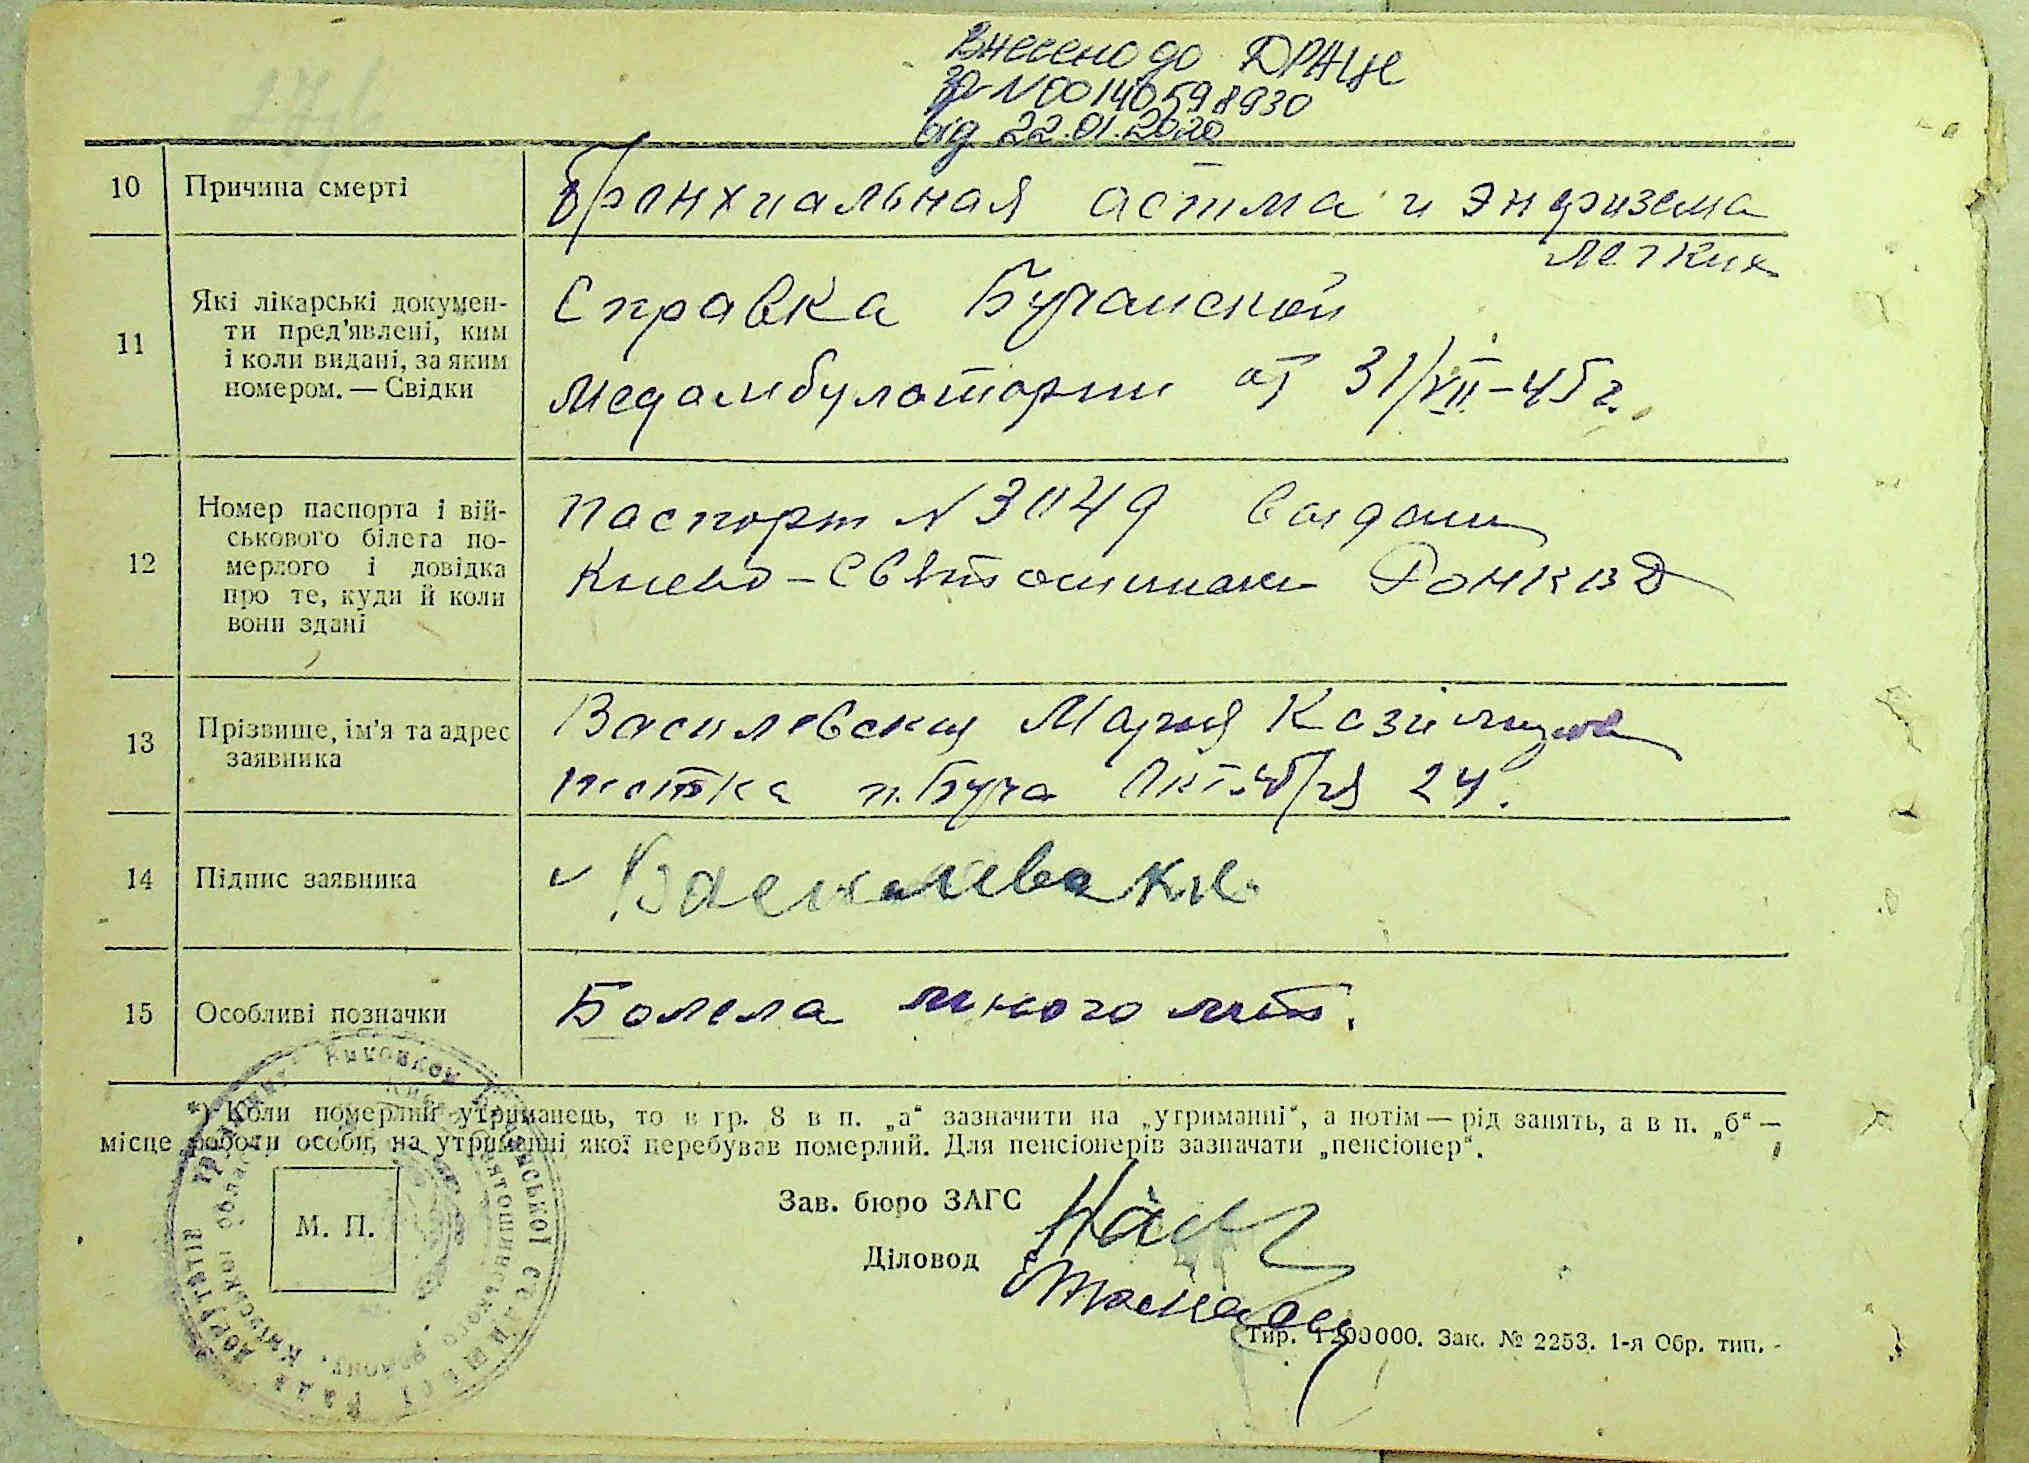 Внесено до ДРАЦС
за N00140598930
від 22.01.2020
10 Причина смерті
Бронхиальная астма и энфизема
легких
11 Які лікарські докумен-
ти пред'явлені, ким
і коли видані, за яким
номером. — Свідки
Справка Бучанской
Медамбулатории от 31/VII-45 г.
12 Номер паспорта і вій-
ськового білета по-
мерлого і довідка
про те, куди й коли
вони здані
Паспорт N 3049 выдан
Киево-Святошинским РОНКВД
13 Прізвище, ім'я та адрес
заявника
Василевская Мария Казимировна
п. Буча Октября 24.
14 Підпис заявника
15 Особливі позначки
Болела много лет.
*) Коли померлий утриманець, то в гр. 8 в п. „а“ зазначити на „утриманні“, а потім — рід занять, а в п. „б“ —
місце роботи особи, на утриманні якої перебував померлий. Для пенсіонерів зазначати „пенсіонер“.
М. П.
Зав. бюро ЗАГС
Діловод
Тир. 1200000. Зак. № 2253. 1-я Обр. тип.